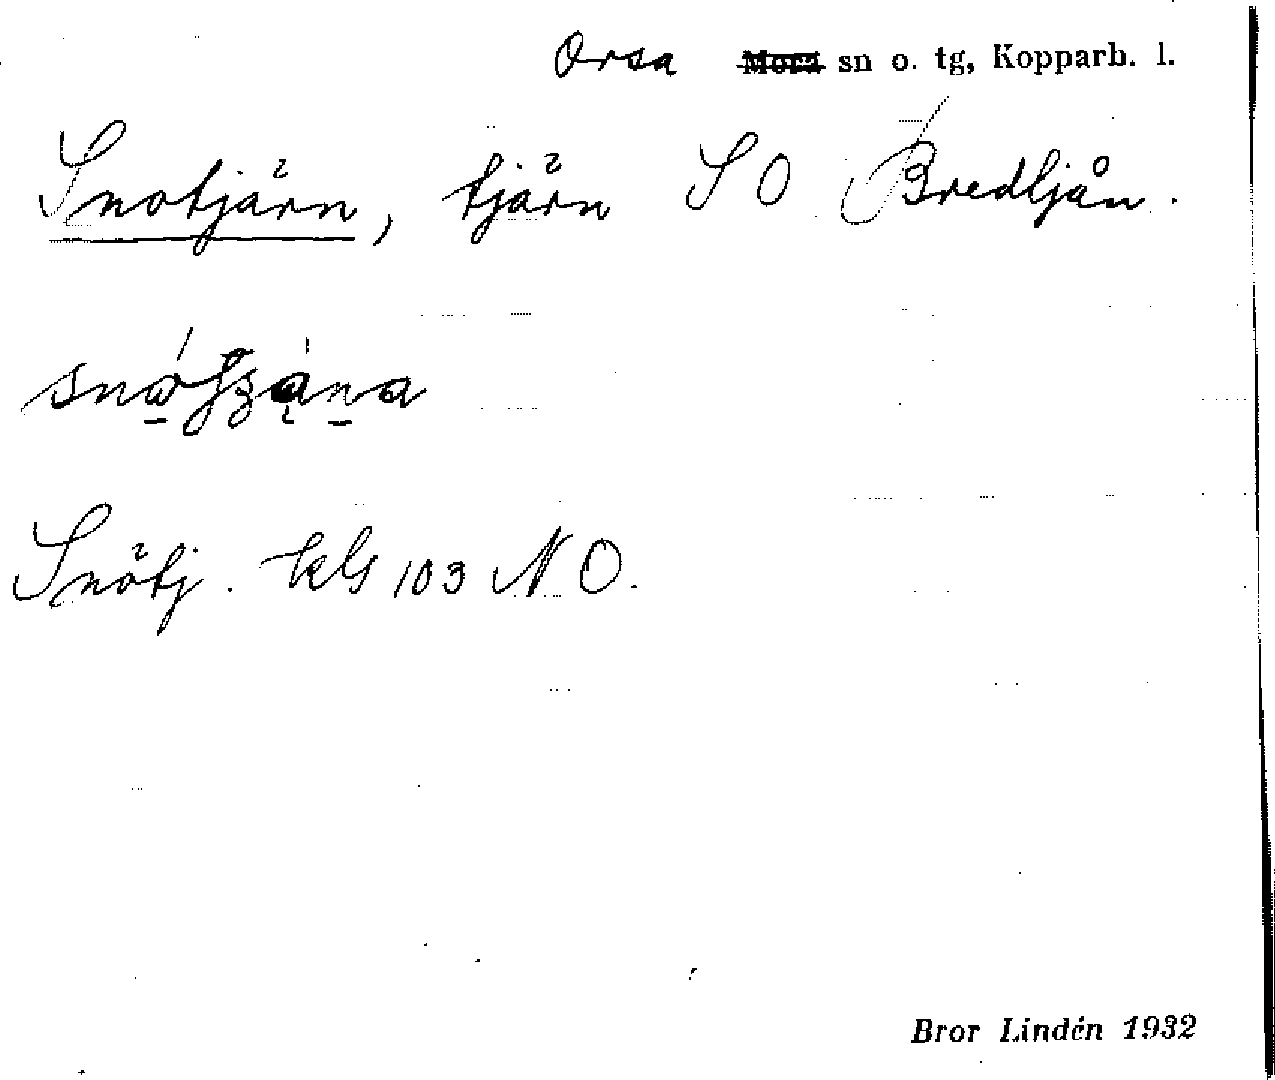 Orsa Mora sn o. tg, Kopparb. l.
Snotjärn, tjärn SO Bredtjån.
Snötj. kbl 103 NO.
Bror Lindén 1932